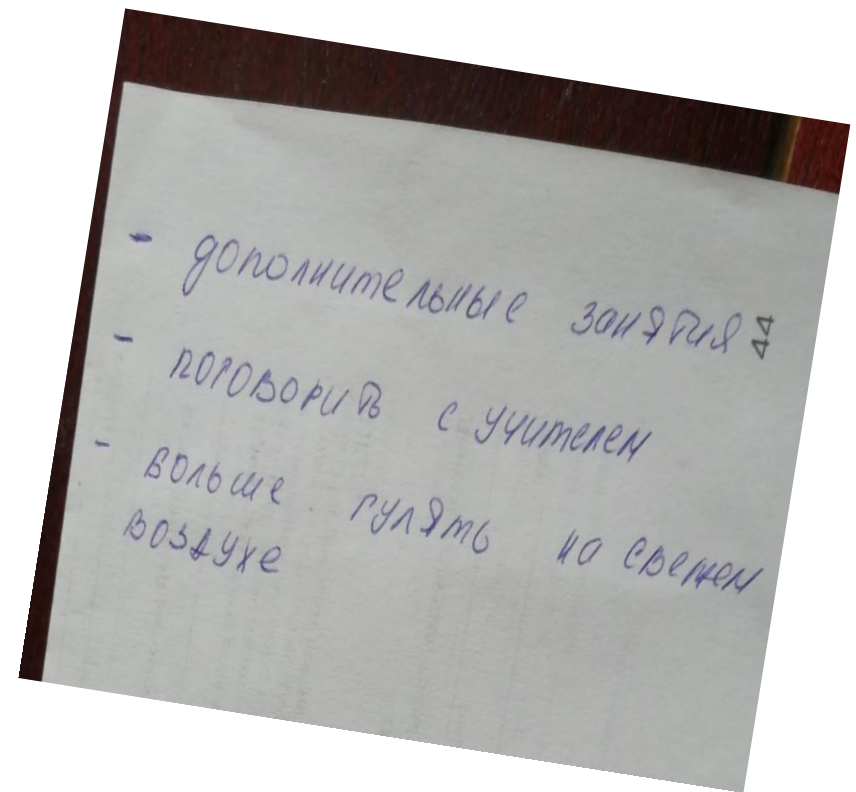 - дополнительные занятия
44
- поговорить с учителем
- больше гулять на свежем
воздухе